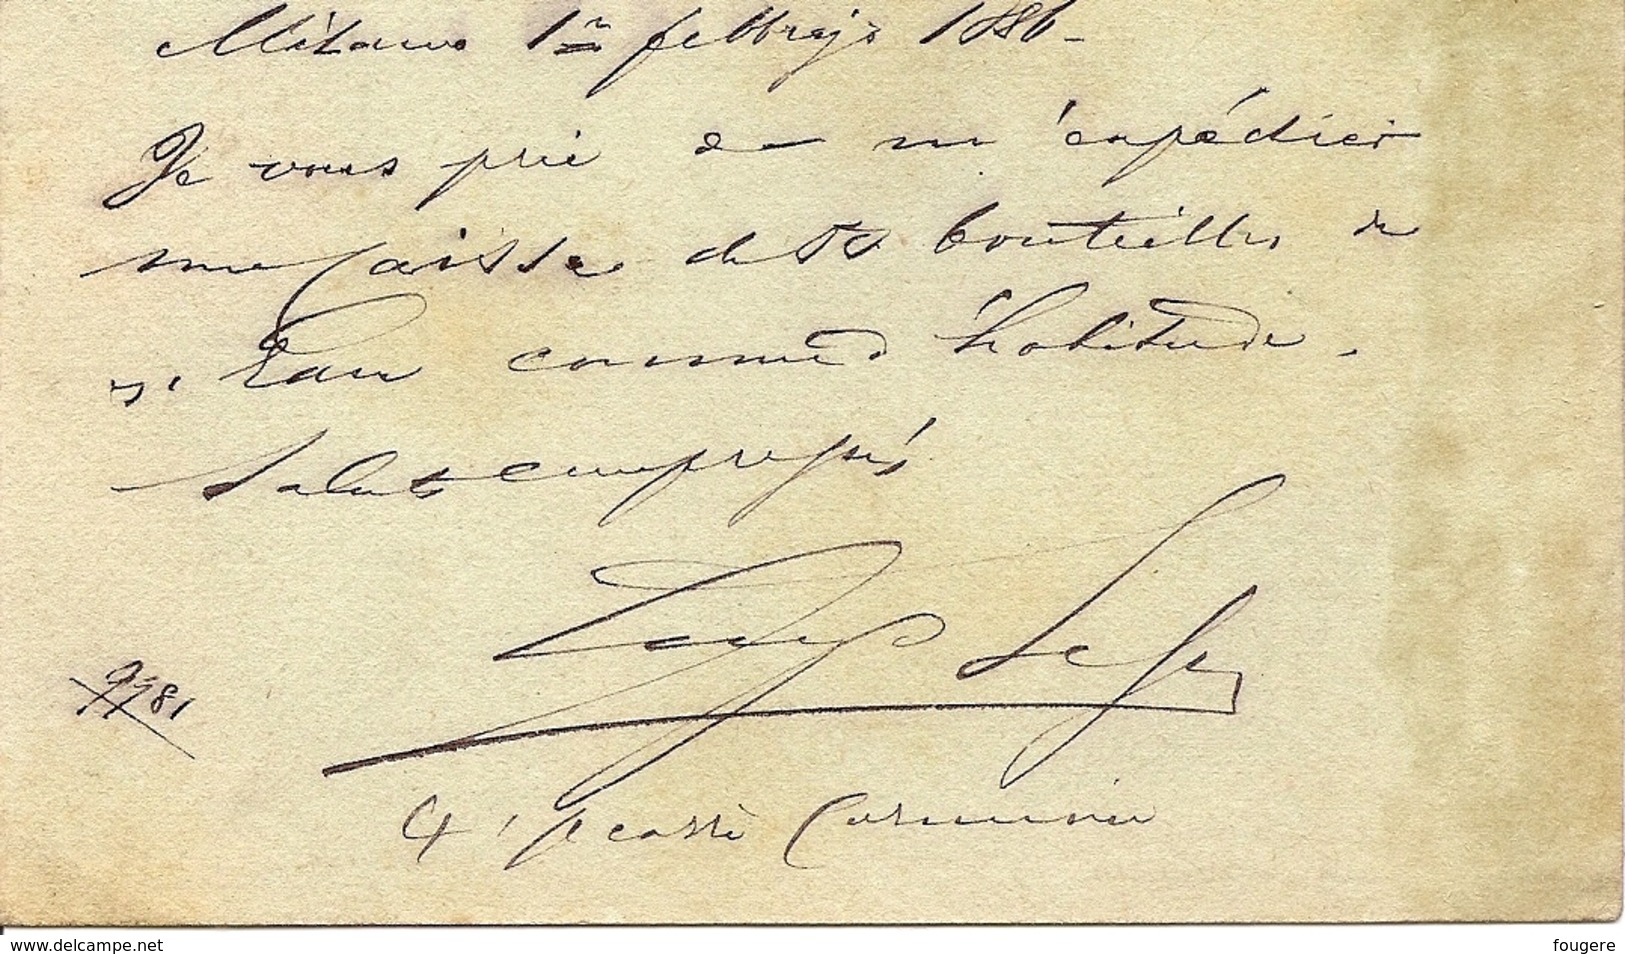 Milano 1er febbrajo 1886 -
Je vous prie de m'expédier
une Caisse de 50 bouteilles de
v. Eau comme d'habitude.
Saluts empressés
Luigi
4,
9781
www.delcampe.net
fougere